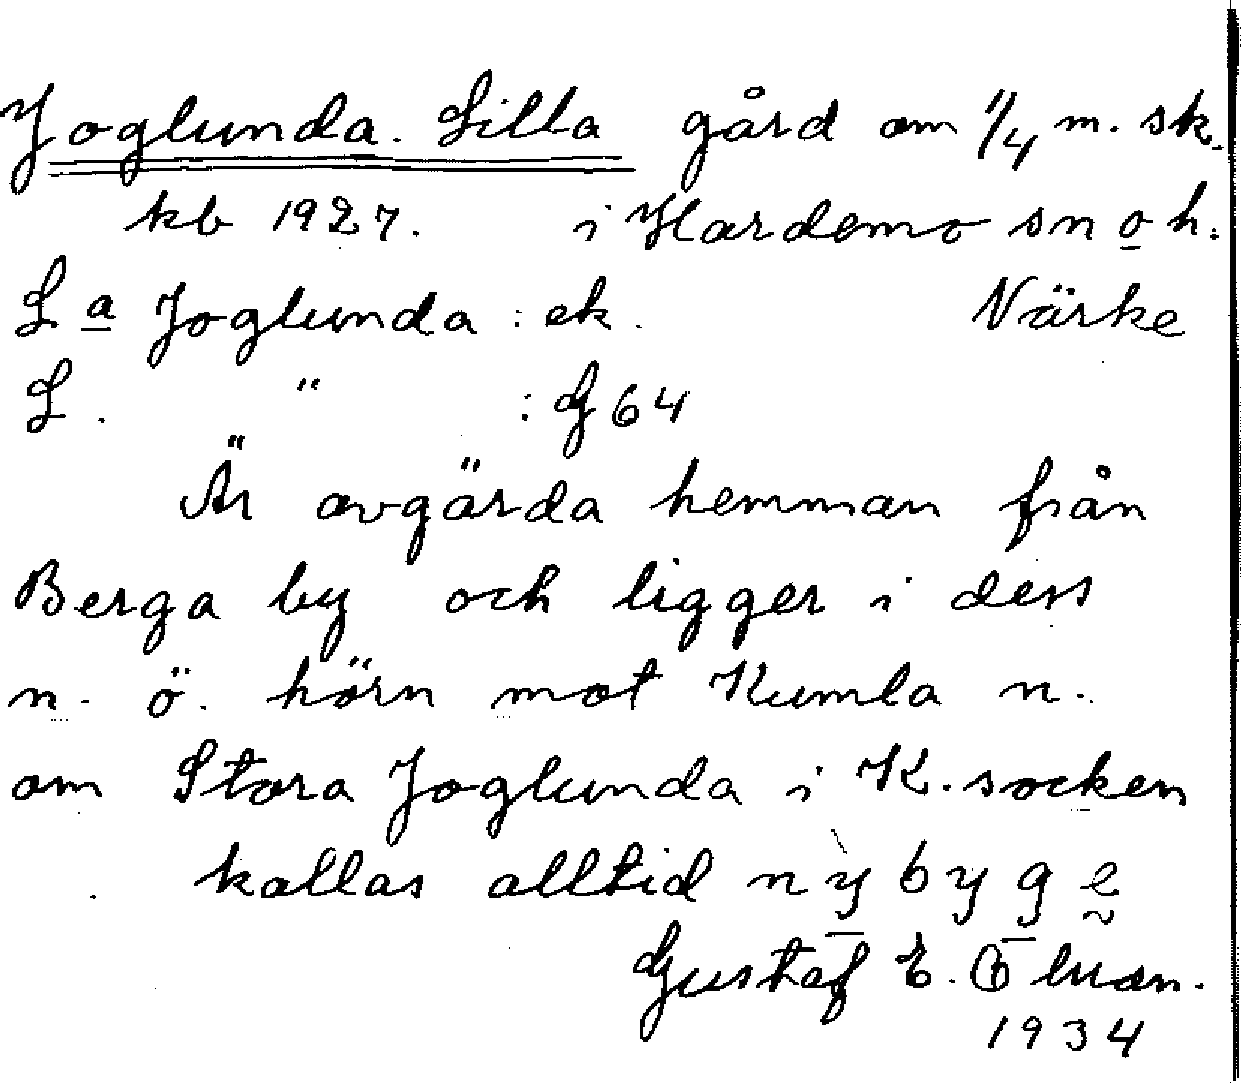 Joglunda. Lilla gård om 1/4 m. sk.
kb 1927. i Hardemo sn o h.
L a Joglunda : ek. Närke
L. " : G 64
Är avgärda hemman från
Berga by och ligger i dess
n. ö. hörn mot Kumla n.
om Stora Joglunda i K. socken
kallas alltid nỳbyge
Gustaf E.
1934